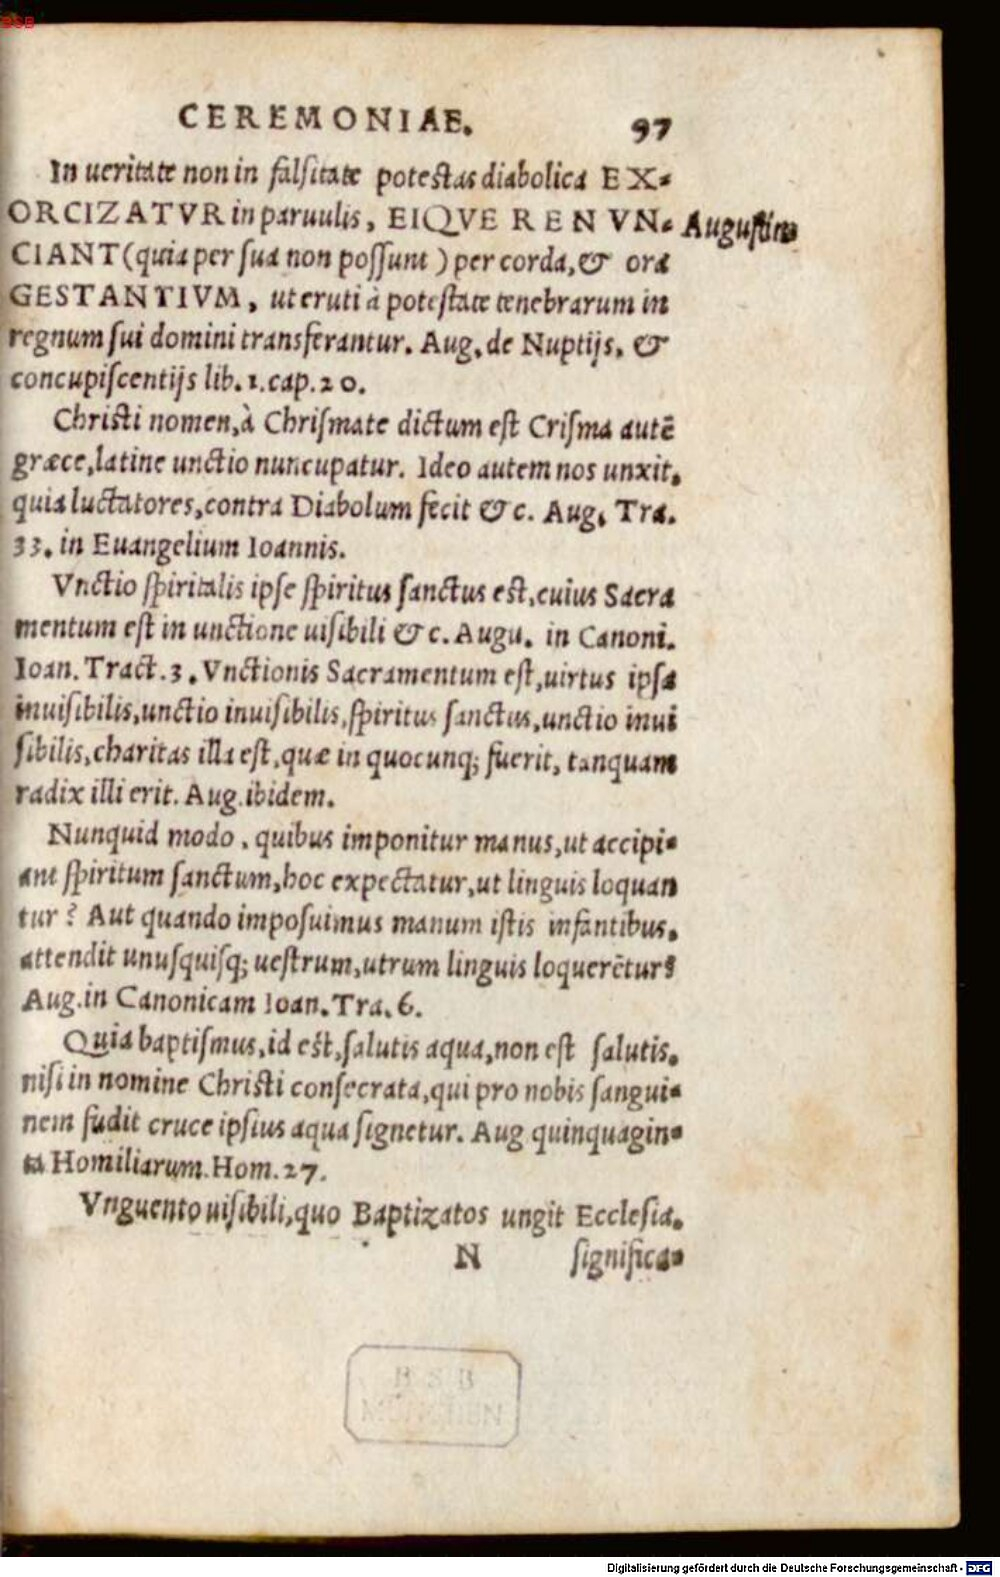 BSB
CEREMONIAE. 97
In ueritate non in falsitate potestas diabolica EX-
ORCIZATVR in paruulis, EIQVE RENVN- Augustin⁹
CIANT (quia per sua non possunt) per corda, & ora
GESTANTIVM, ut eruti à potestate tenebrarum in
regnum sui domini transferantur. Aug. de Nuptijs, &
concupiscentijs lib. 1. cap. 20.
Christi nomen, à Chrismate dictum est Crisma autē
græce, latine unctio nuncupatur. Ideo autem nos unxit,
quia luctatores, contra Diabolum fecit &c. Aug. Tra.
33. in Euangelium Ioannis.
Vnctio spiritalis ipse spiritus sanctus est, cuius Sacra
mentum est in unctione uisibili &c. Augu. in Canoni.
Ioan. Tract. 3. Vnctionis Sacramentum est, uirtus ipsa
inuisibilis, unctio inuisibilis, spiritus sanctus, unctio inui
sibilis, charitas illa est, quæ in quocunq; fuerit, tanquam
radix illi erit. Aug. ibidem.
Nunquid modo, quibus imponitur manus, ut accipi-
ant spiritum sanctum, hoc expectatur, ut linguis loquan
tur? Aut quando imposuimus manum istis infantibus,
attendit unusquisq; uestrum, utrum linguis loquerētur?
Aug. in Canonicam Ioan. Tra. 6.
Quia baptismus, id est, salutis aqua, non est salutis,
nisi in nomine Christi consecrata, qui pro nobis sangui-
nem fudit cruce ipsius aqua signetur. Aug quinquagin-
ta Homiliarum. Hom. 27.
Vnguento uisibili, quo Baptizatos ungit Ecclesia,
N significa-
BSB
MÜNCHEN
Digitalisierung gefördert durch die Deutsche Forschungsgemeinschaft - DFG